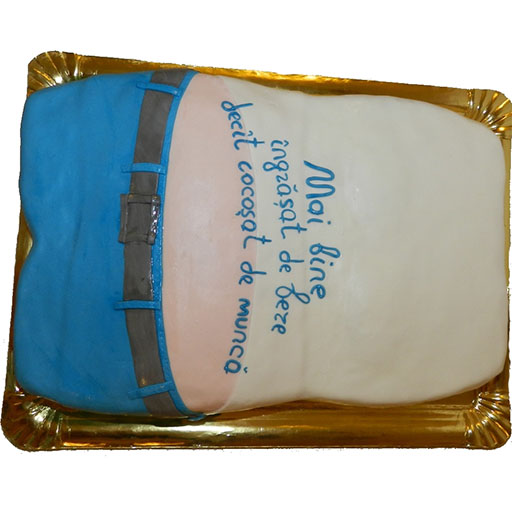 Mai bine
îngrășat de beze
decit cocoșat de muncă